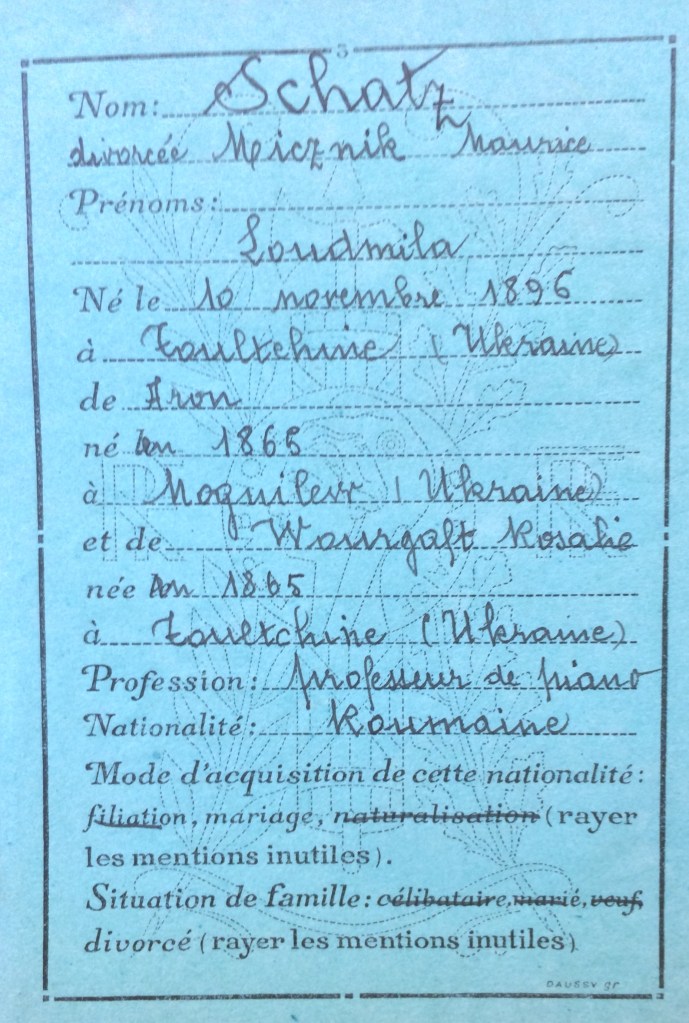 3
Nom: Schatz
divorcée Micznik Maurice
Prénoms:
Loudmila
Né le 10 novembre 1896
à Toultchine (Ukraine)
de Aron
né en 1865
à Moguilew (Ukraine)
et de Wourgaft Rosalie
née en 1865
à Toultchine (Ukraine)
Profession: professeur de piano
Nationalité: Roumaine
Mode d'acquisition de cette nationalité:
filiation, mariage, naturalisation (rayer
les mentions inutiles).
Situation de famille: célibataire, marié, veuf,
divorcé (rayer les mentions inutiles)
R F
DAUSSY gr